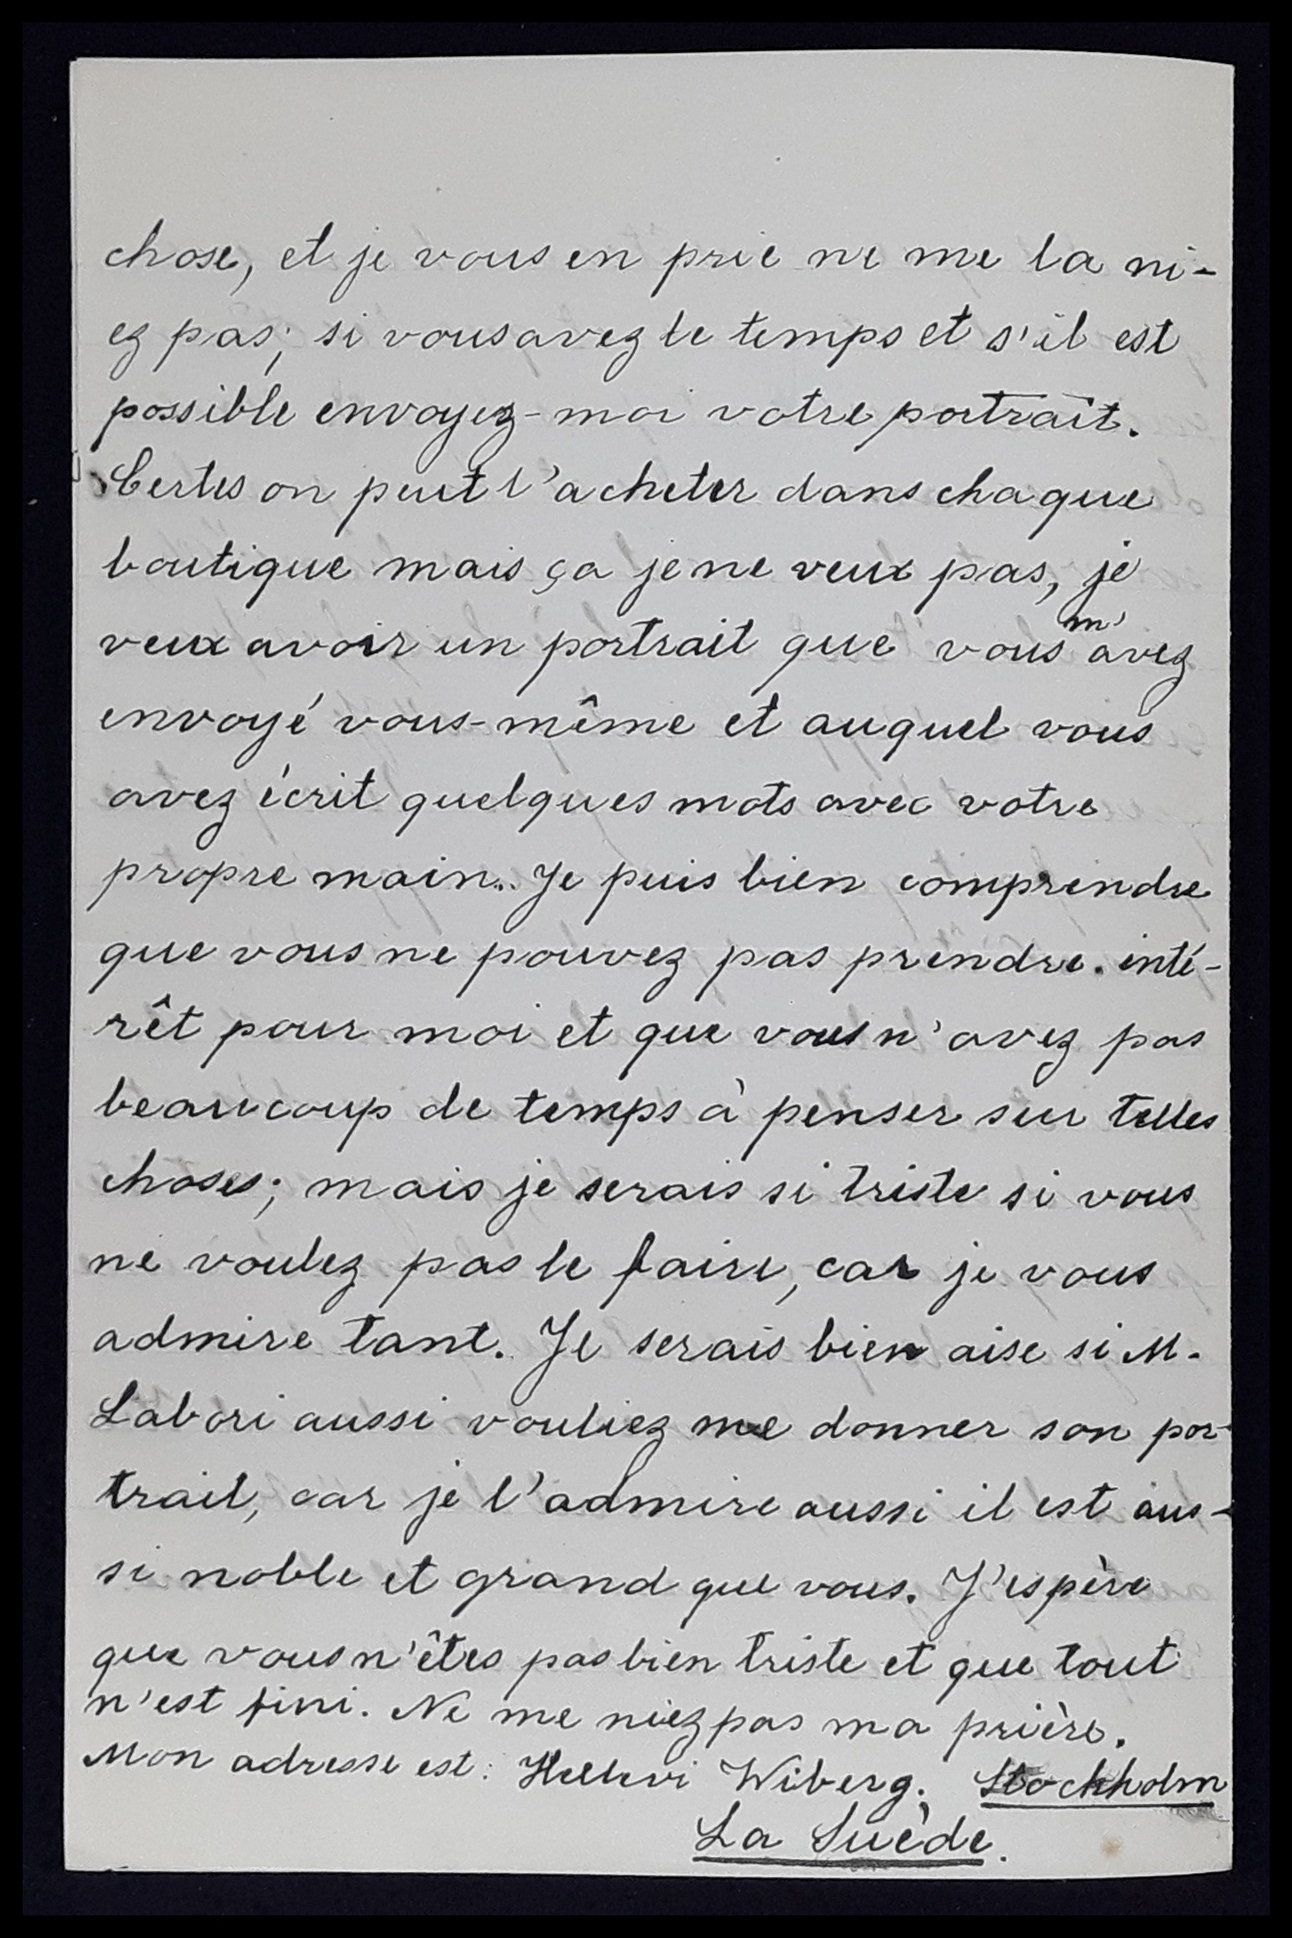 chose, et je vous en prie ne me la ni-
ez pas; si vous avez le temps et s'il est
possible envoyez-moi votre portrait.
Certes on peut l'acheter dans chaque
boutique mais ça je ne veux pas, je
veux avoir un portrait que vous m'avez
envoyé vous-même et auquel vous
avez écrit quelques mots avec votre
propre main. Je puis bien comprendre
que vous ne pouvez pas prendre inté-
rêt pour moi et que vous n'avez pas
beaucoup de temps à penser sur telles
choses; mais je serais si triste si vous
ne voulez pas le faire, car je vous
admire tant. Je serais bien aise si M.
Labori aussi vouliez me donner son por-
trait, car je l'admire aussi il est aus-
si noble et grand que vous. J'espère
que vous n'êtes pas bien triste et que tout
n'est fini. Ne me niez pas ma prière.
Mon adresse est: Hellevi Wiberg. Stockholm
La Suède.